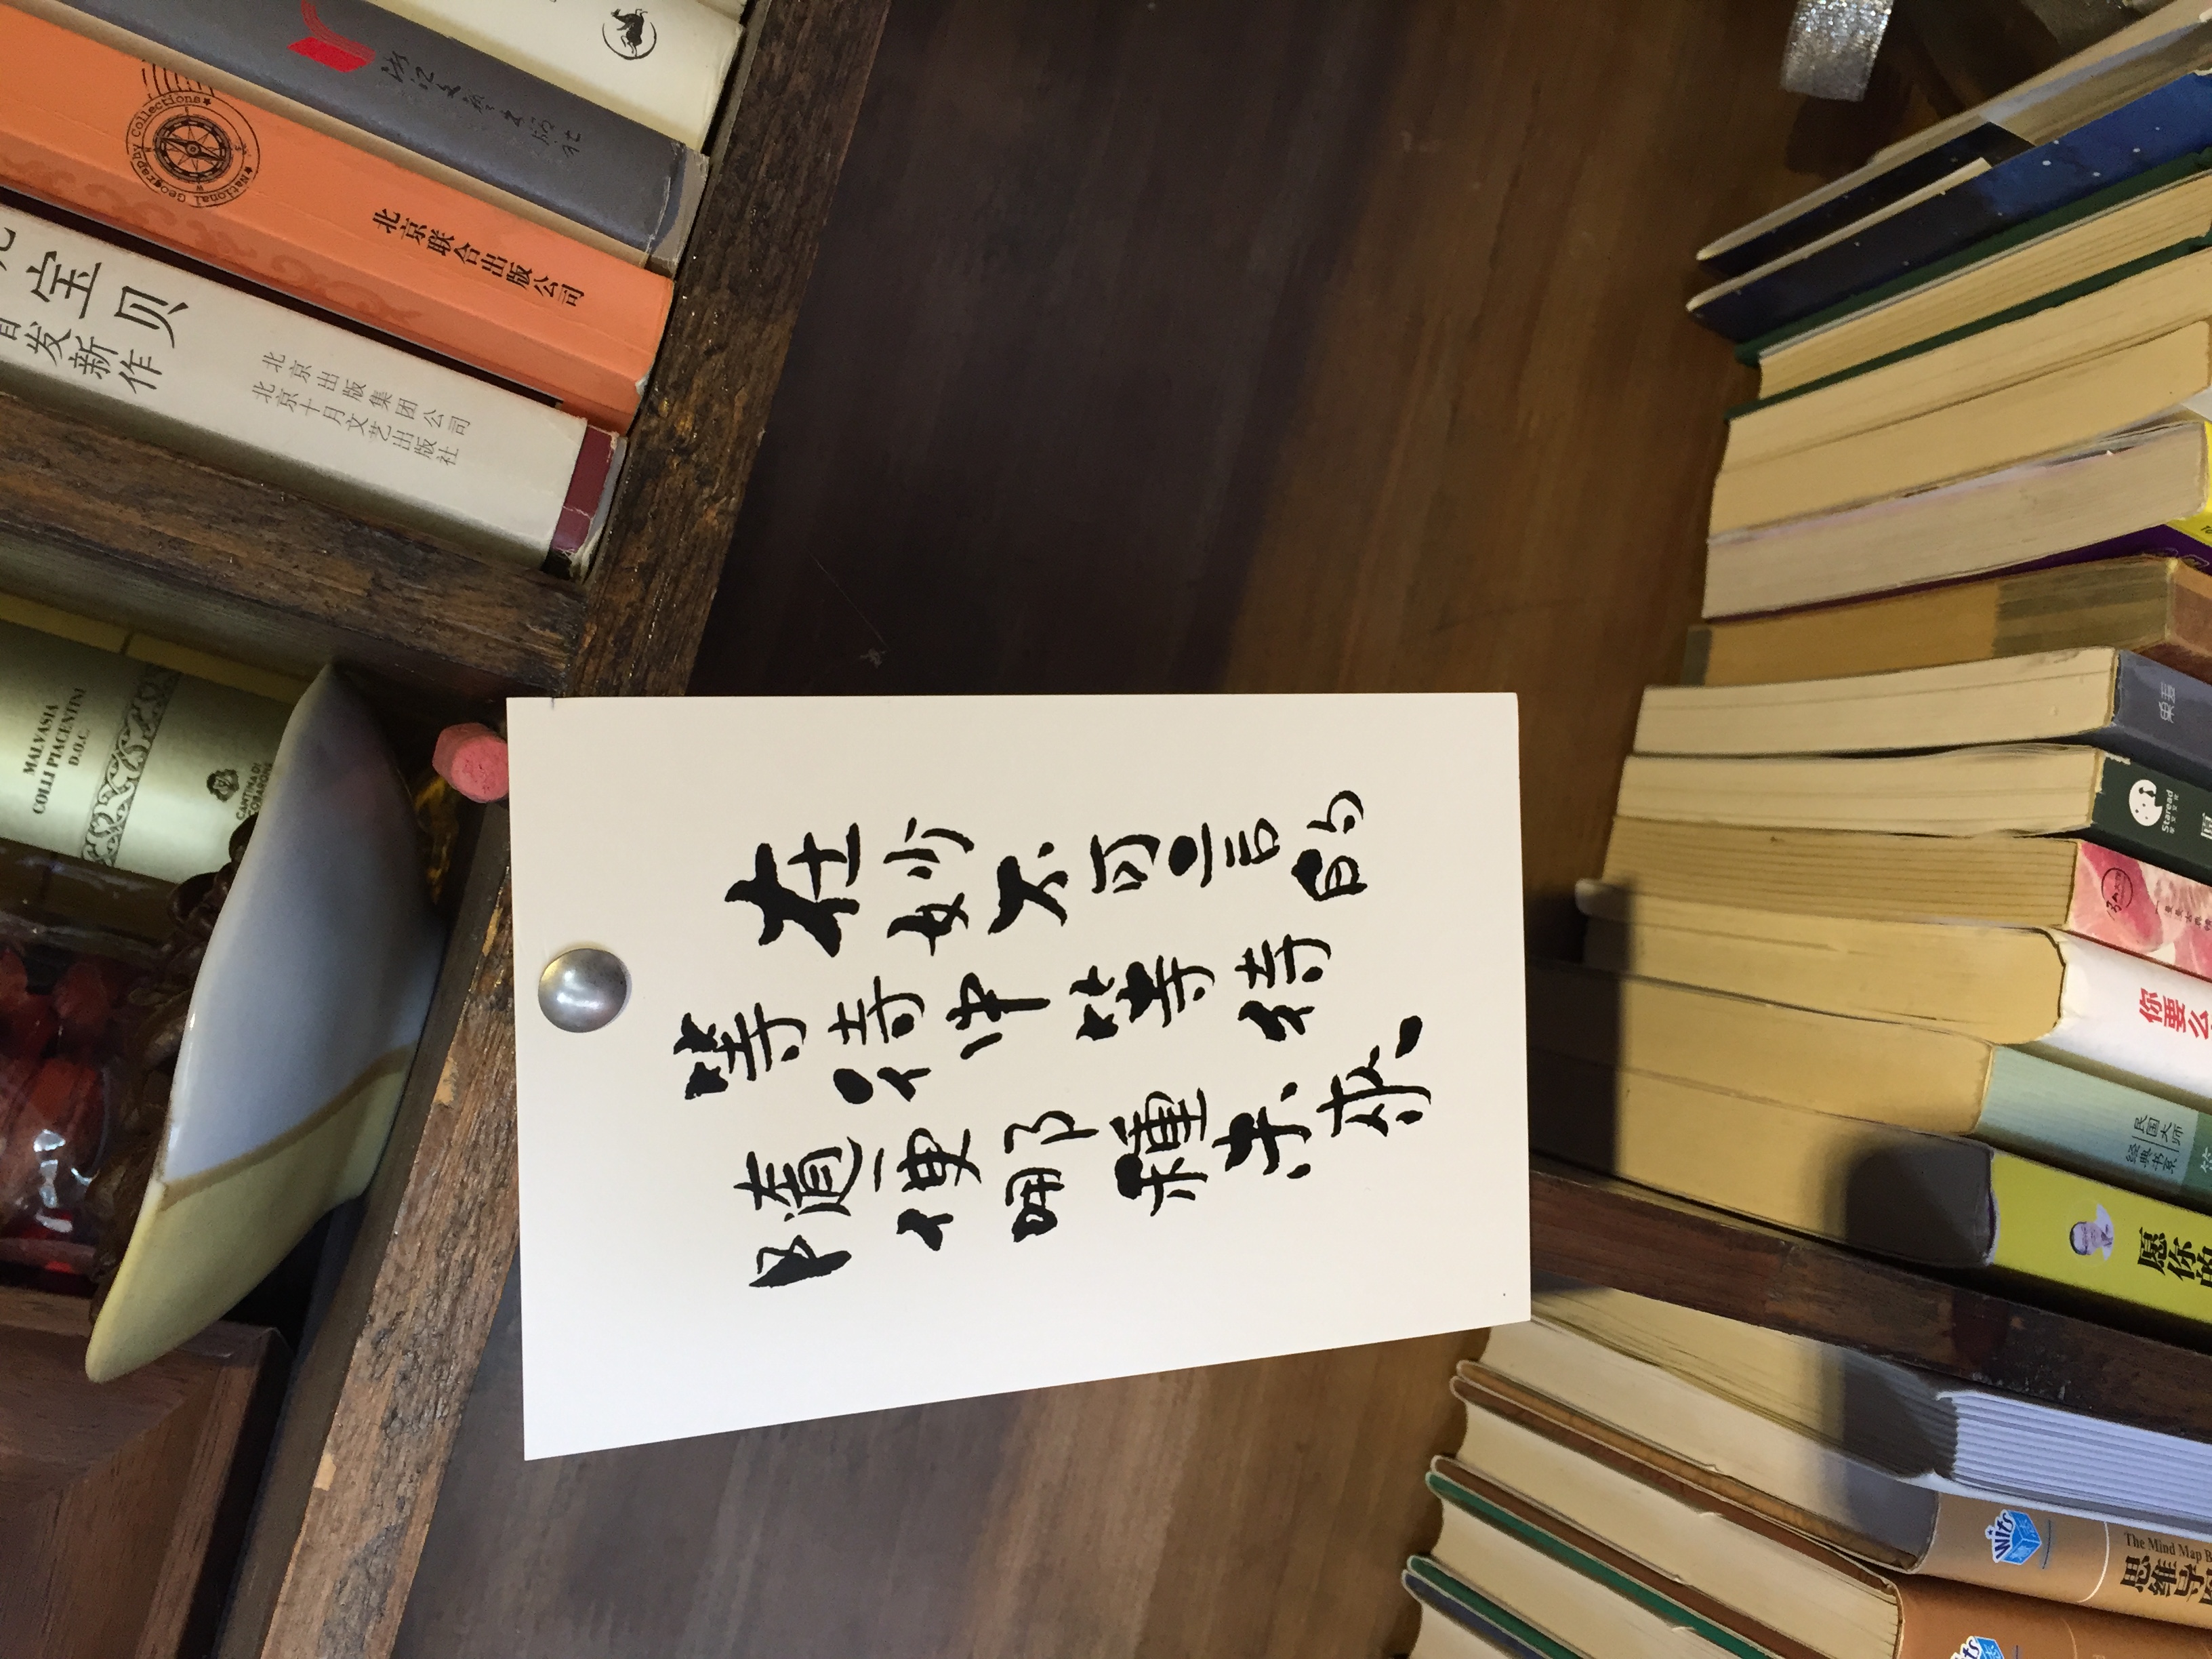 MALVASIA
COLLI PIACENTINI
D.O.C.
CANTINA DI
宝贝
发新作
北京出版集团公司
北京十月文艺出版社
National Geography Collections
北京联合出版公司
浙江文艺出版社
在妙不可言的
等待中等待
隨便哪種未來
Wits
意志
思维导图
The Mind Map B
愿你的
民国大师
经典书系
你要么
Staread
愿
果麦